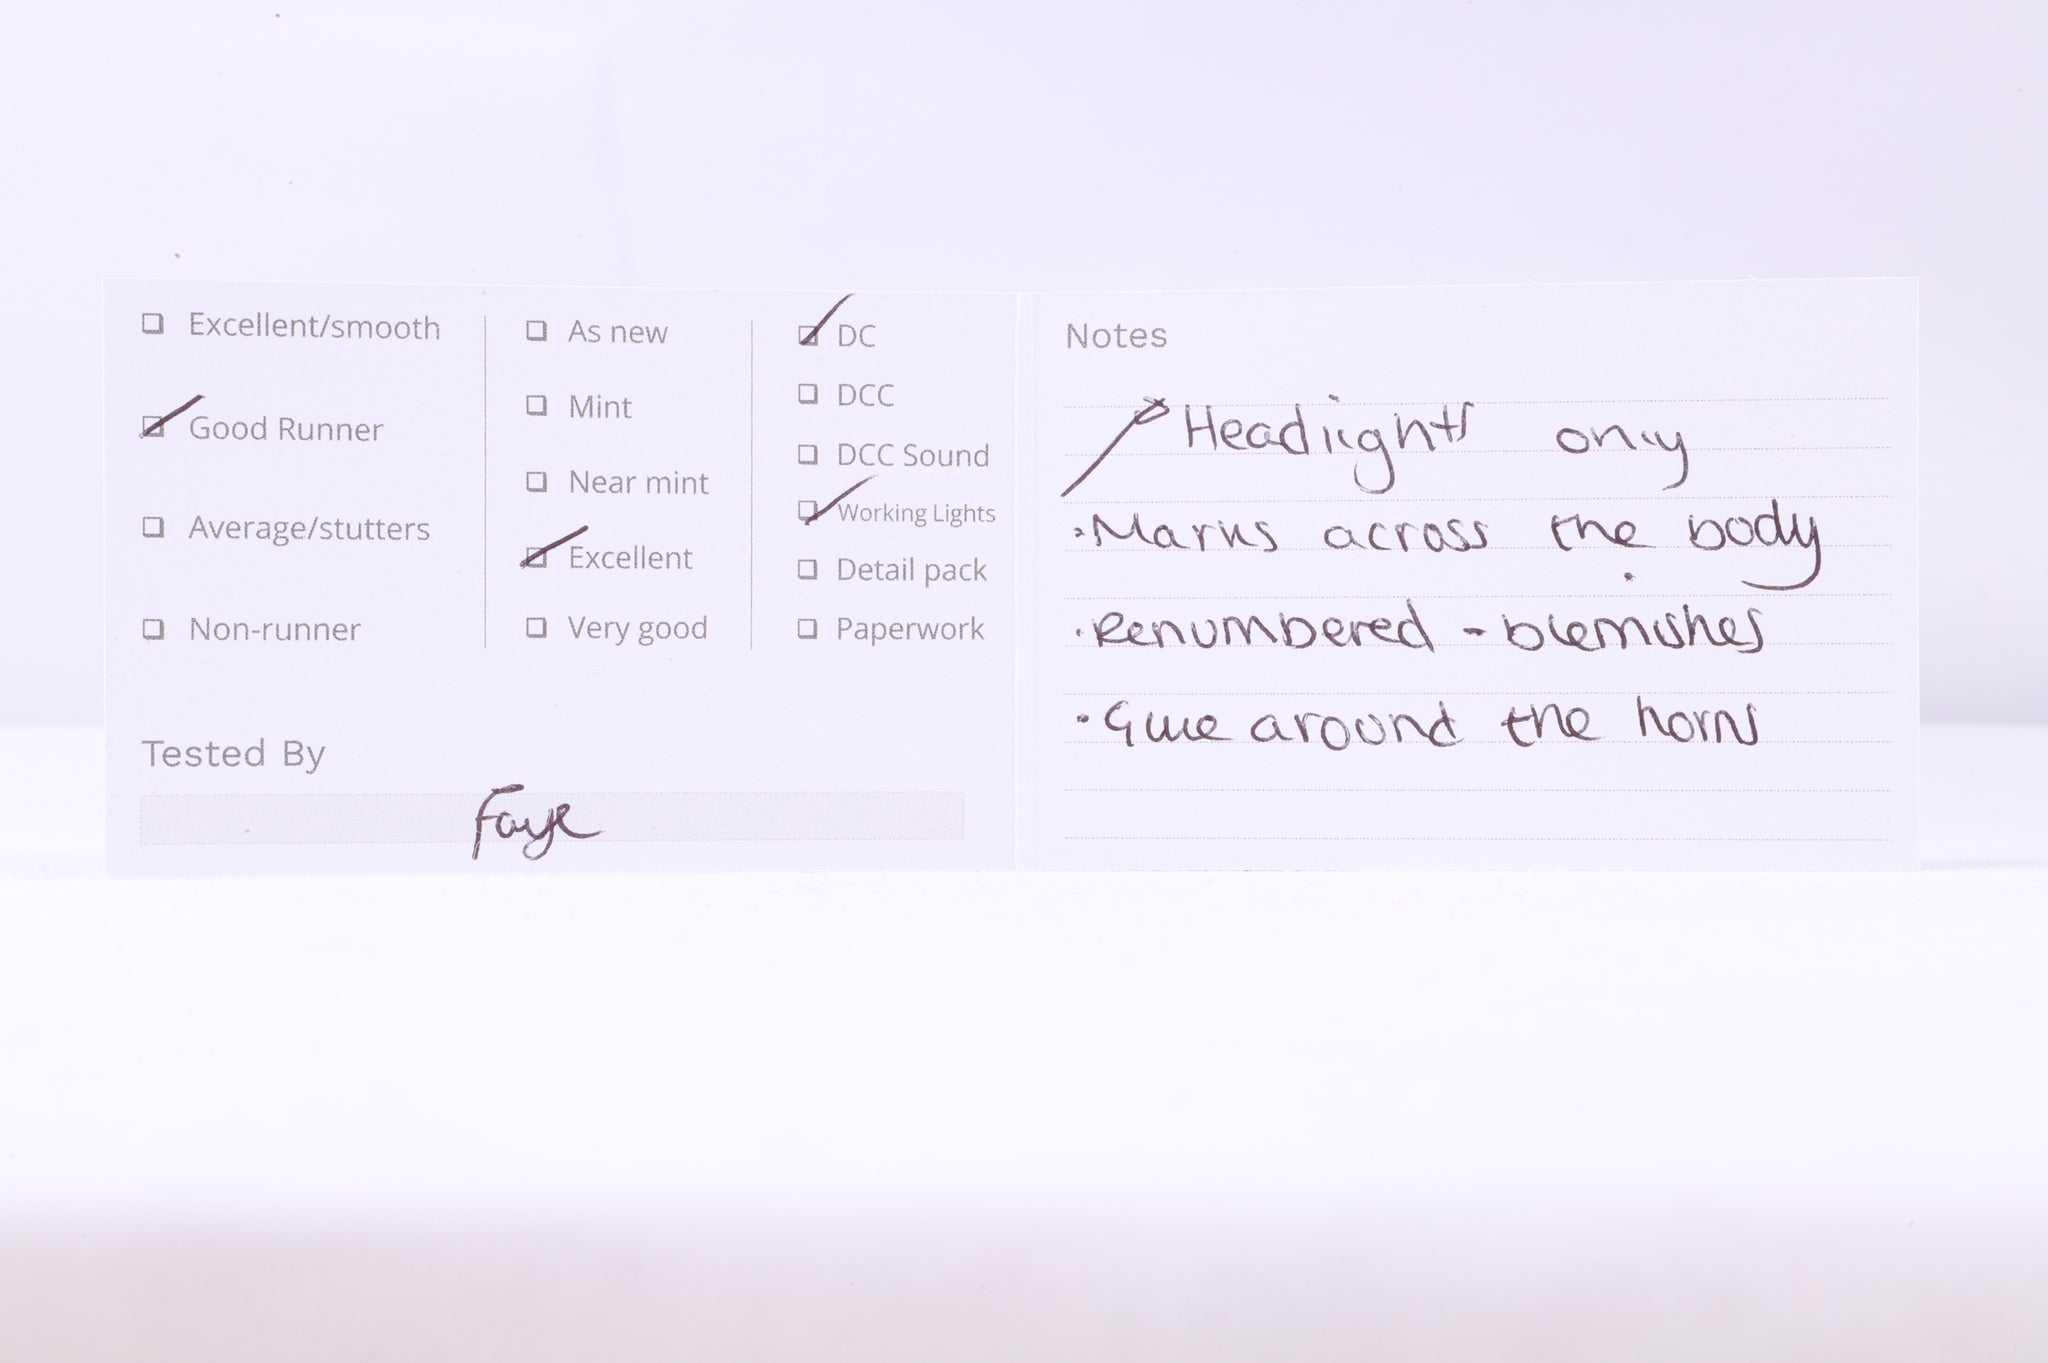 Excellent/smooth
Good Runner
Average/stutters
Non-runner
As new
Mint
Near mint
Excellent
Very good
DC
DCC
DCC Sound
Working Lights
Detail pack
Paperwork
Tested By
Faye
Notes
Headlights only
• Marks across the body
• Renumbered - blemishes
• Glue around the horns